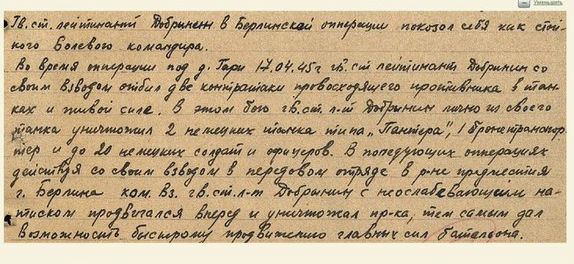 Уменьшить
Гв. ст. лейтинант Добрынин в Берлинской опперации показол себя как стой-
кого Болевого командира.
Во время опперации под д. Гари 17.04.45г гв. ст лейтинант Добрынин со
своим взводом отбил две контратаки провосходящего противника в тан-
ках и живой силе. В этом бою гв. ст. л-т Добрынин лично из своего
танка уничтожил 2 немецких танка типа „Пантера", 1 бронетранспор-
тер и до 20 немецких солдат и офицеров. В попедующих опперациях
действуя со своим взводом в передовом отряде в р-не предместия
г. Берлина ком. вз. гв. ст. л-т Добрынин с неослабевающим на-
тиском продвигался вперед и уничтожал пр-ка, тем самым дал
возможность быстрому продвижению главных сил батальона.